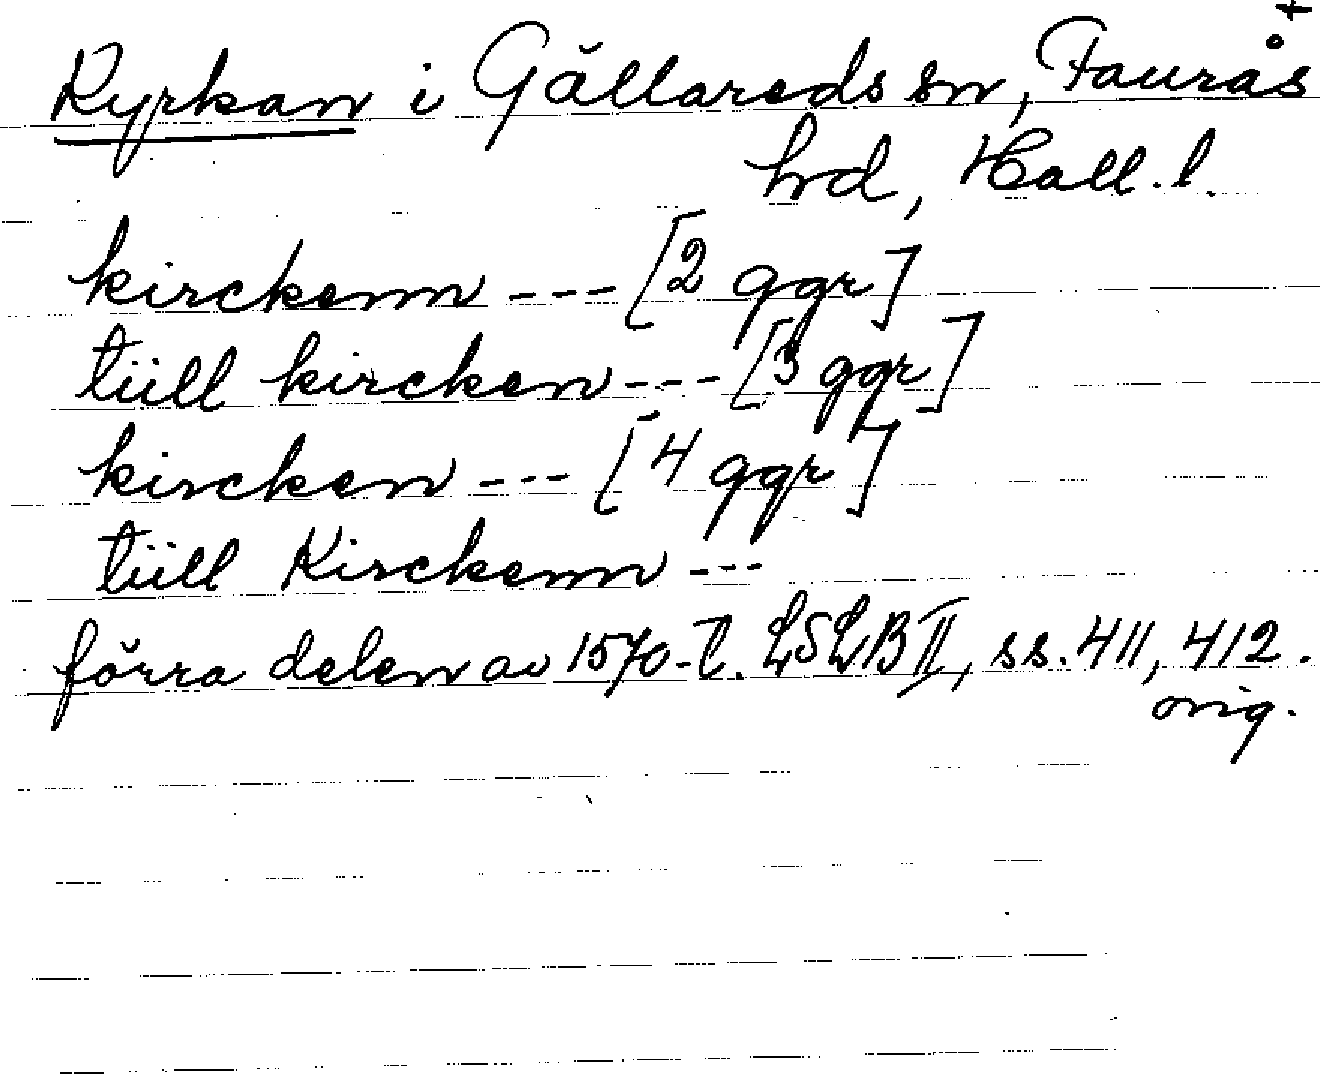 +
Kyrkan i Gällareds sn, Faurås
hd, Hall. l.
kirckenn --- [2 ggr]
tiill kircken --- [3 ggr]
kircken --- [4 ggr]
tiill Kirckenn ---
förra delen av 1570-t. LSLB II, ss. 411, 412.
orig.